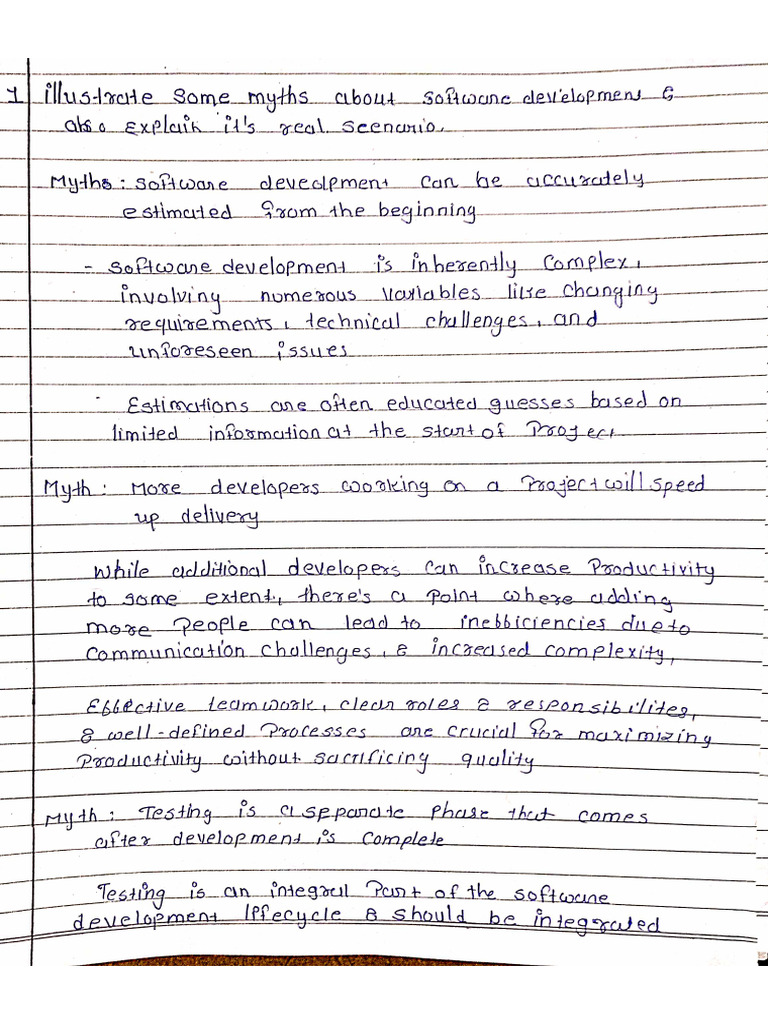 1 illustrate some myths about software development &
also explain it's real scenario.
Myths: software development can be accurately
estimated from the beginning
- software development is inherently complex,
involving numerous variables like changing
requirements, technical challenges, and
unforeseen issues
Estimations are often educated guesses based on
limited information at the start of Project
Myth: More developers working on a Project will speed
up delivery
While additional developers can increase Productivity
to some extent, there's a point where adding
more People can lead to inefficiencies due to
communication challenges, & increased complexity,
Effective teamwork, clear roles & responsibilites,
& well-defined Processes are crucial for maximizing
Productivity without sacrificing quality
Myth: Testing is a separate Phase that comes
after development is complete
Testing is an integral Part of the software
development lifecycle & should be integrated